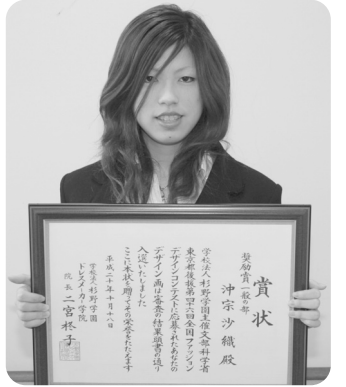 賞状
奨励賞一般の部
沖宗沙織殿
学校法人杉野学園主催文部科学省
東京都後援第四十六回全国ファッション
デザインコンテストに応募されたあなたの
デザイン画は審査の結果頭書の通り
入選いたしました
ここに本状を贈ってその栄誉をたたえます
平成二十年十月十八日
学校法人杉野学園
ドレスメーカー学院
院長 二宮柊子